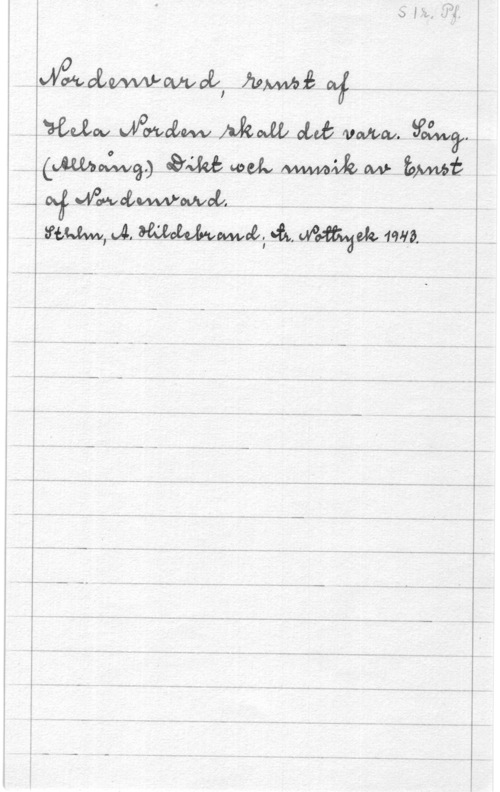 S 1 r. Pf.
Nordenvard, Ernst af
Hela Norden skall det vara. Sång.
(Allsång.) Dikt och musik av Ernst
af Nordenvard.
Sthlm, A. Hildebrand; tr. Nottryck 1943.